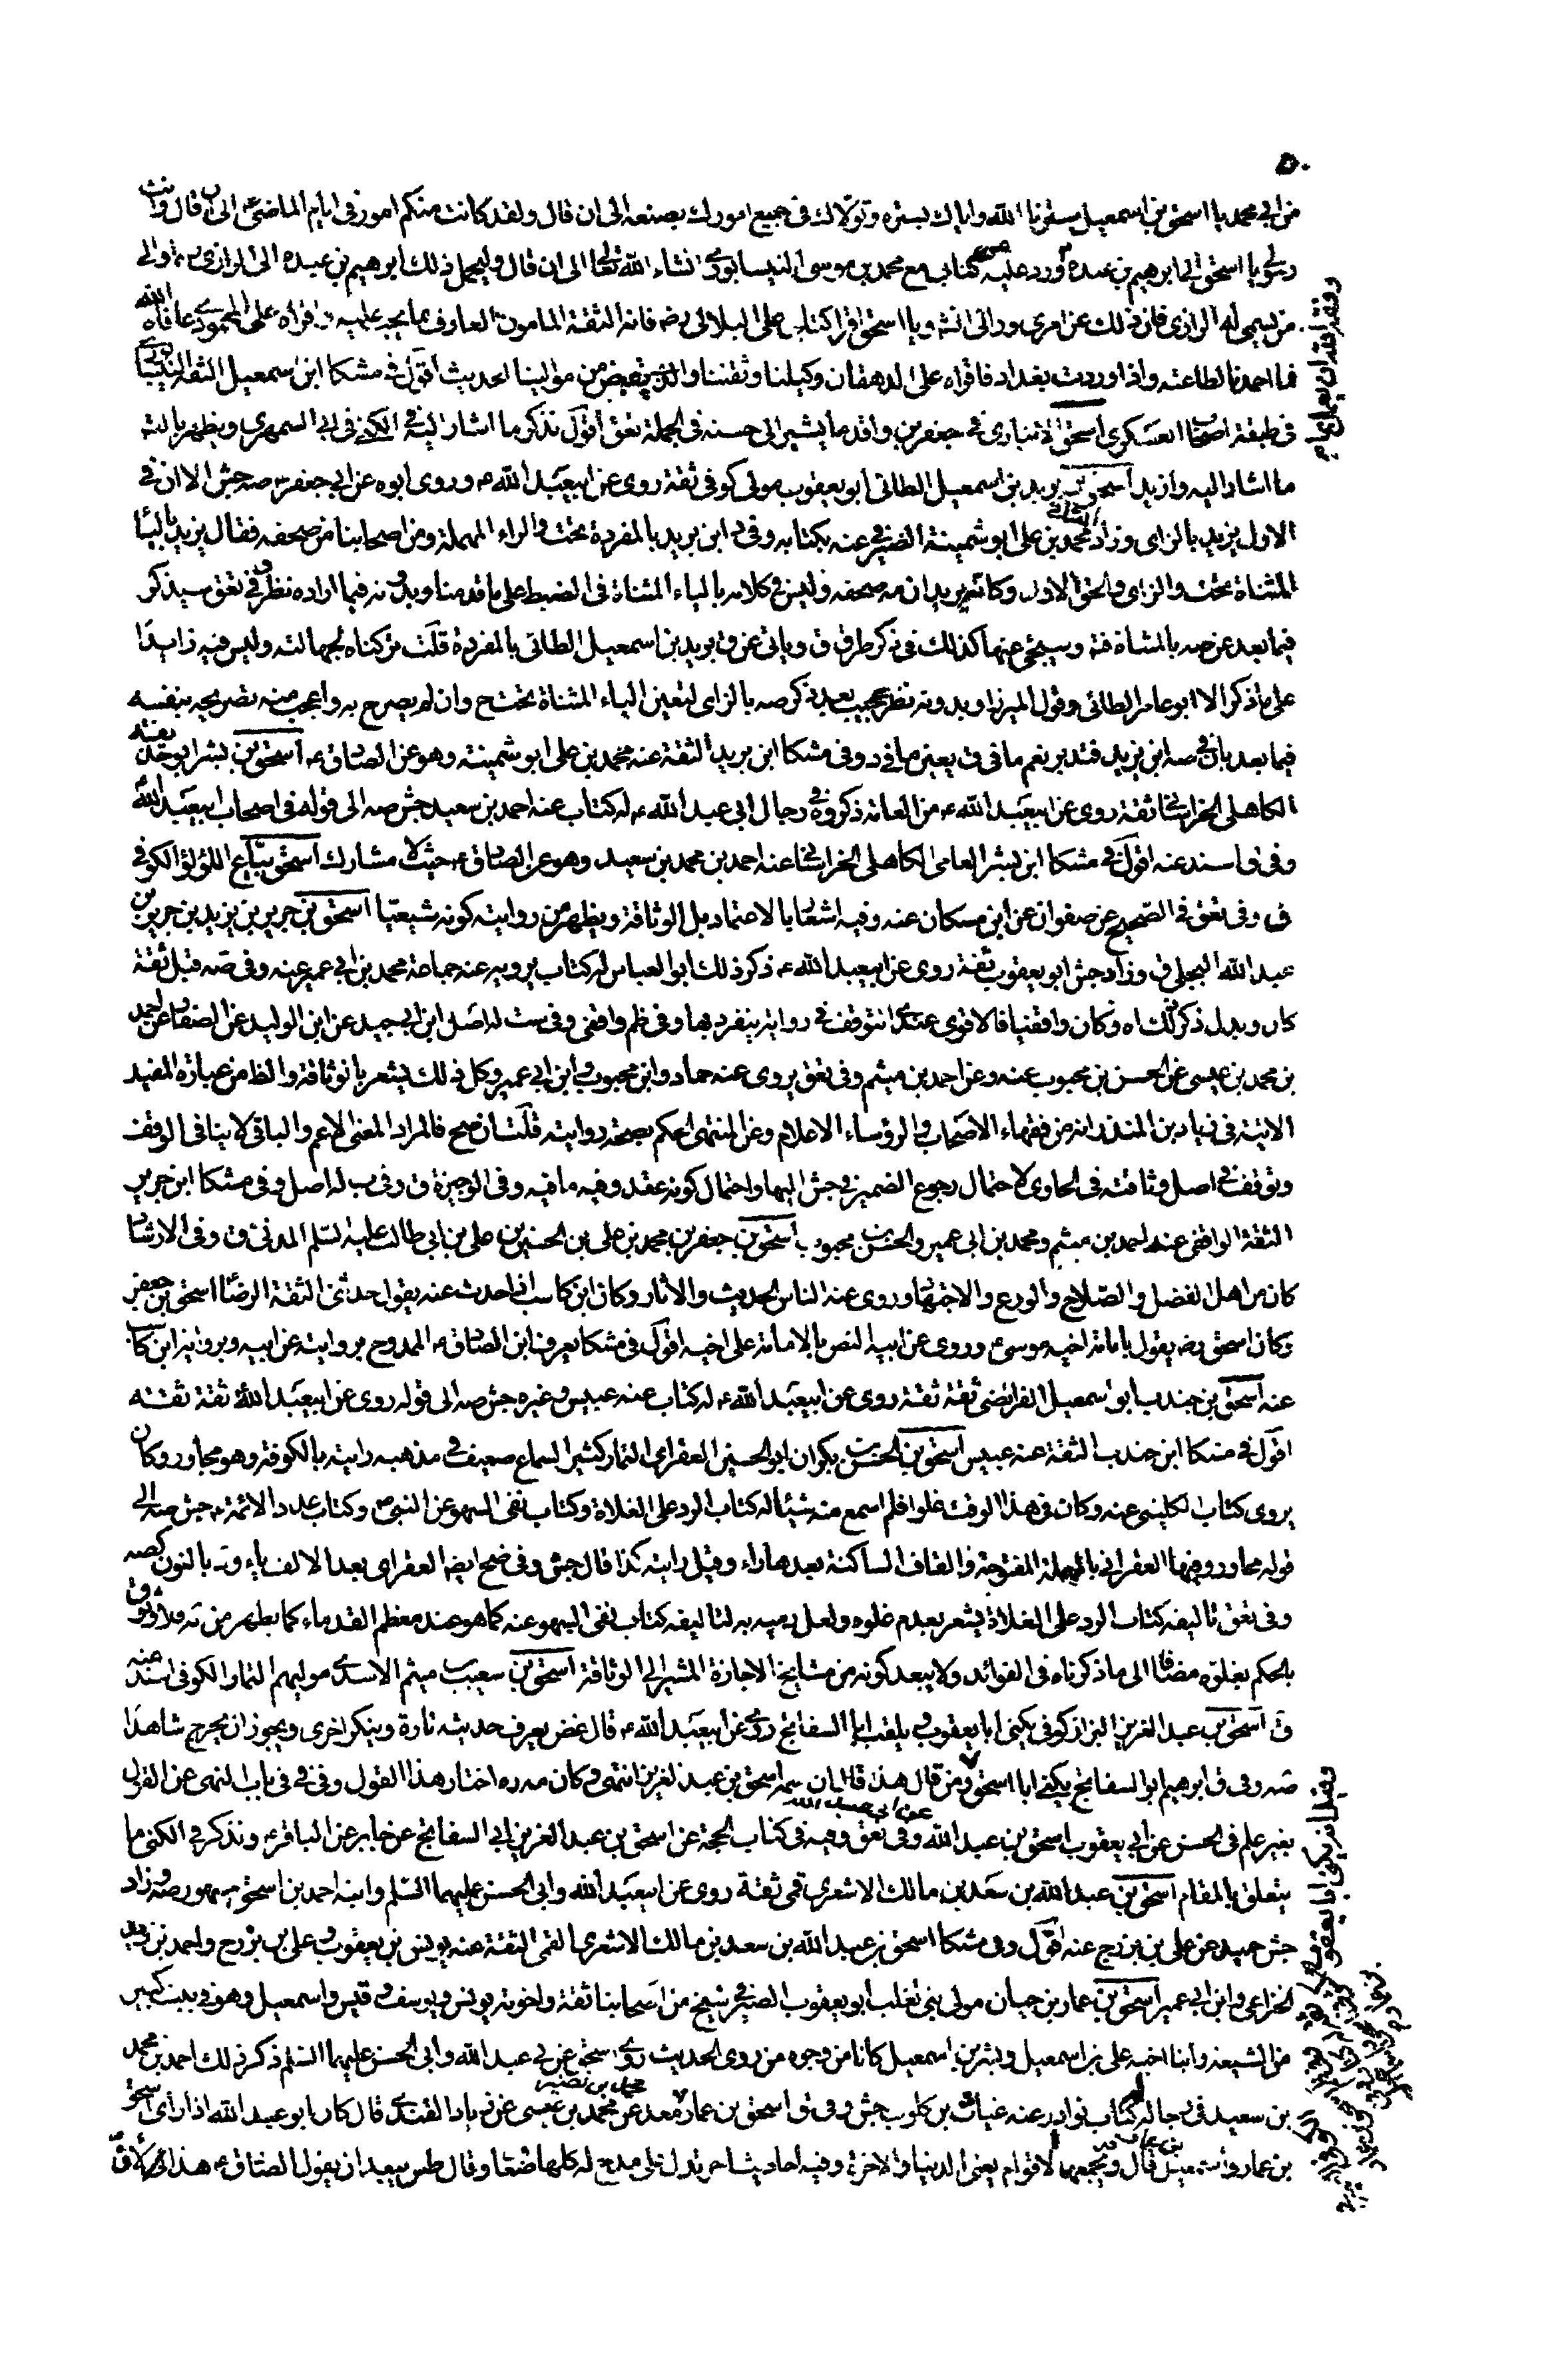 ٥٠
من ابي محمد يا اسحق بن اسمعيل سترنا الله واياك بستره وتولاك في جميع امورك بصنعه الى ان قال ولقد كانت منكم امور في ايام الماضي ع الى ان قال وانت
رسولي يا اسحق الى ابرهيم بن عبده ورد عليه كتابي مع محمد بن موسى النيسابوري انشاء الله تعالى الى ان قال وليحمل ذلك ابرهيم بن عبده الى الرازي رض او الى
من يسمي له الرازي فان ذلك عن امري ورائي انش ويا اسحق اقرا كتابي على البلالي رض فانه الثقة المامون العارف بما يجب عليه واقراه على المحمودي عافاه الله
فما احمدنا لطاعته واذا وردت بغداد فاقراه على الدهقان وكيلنا وثقتنا والذي يقبض من موالينا الحديث اقول في مشكا ابن اسمعيل الثقة النيسابوري
في طبقة اصحاب العسكري اسحق الانباري في جعفر بن واقد ما يشير الى حسنه في الجملة تعق اقول نذكر ما اشار اليه في الكنى في ابي السمهري ويظهر بالتتبع
ما اشار اليه وازيد اسحق بن بريد بن اسمعيل الطائي ابو يعقوب مولى كوفي ثقة روى عن ابيعبد الله ع وروى ابوه عن ابي جعفر ع صه جش الا ان في
الاول يزيد بالزاي وزاد الثاني محمد بن علي ابو شمينة الصيرفي عنه بكتابه وفي د ابن بريد بالمفردة تحت والراء المهملة ومن اصحابنا من صحفه فقال يزيد بالياء
المثناة تحت والزاي والحق الاول وكانه يريد ان صه صحفه وليس في كلامه بالياء المثناة في الضبط على ما قدمنا وبدونه فيما اراده نظر وفي تعق سيذكر
فيما بعد عن صه بالمثناة فتد وسيجئ عنهما كذلك في ذكر طرق ق وياتي عن ق بريد بن اسمعيل الطائي بالمفردة قلت تركناه لجهالته وليس فيه زايدا
على ما ذكر الا ابو عامر الطائي وقول الميرزا وبدونه نظر عجيب بعد ذكر صه بالزاي لتعين الياء المثناة تحت ح وان لم يصرح به واعجب منه تصريحه بنفسه
فيما بعد بان في صه ابن يزيد فتدبر نعم ما في ق يعين ما في د وفي مشكا ابن بريد الثقة عنه محمد بن علي ابو شمينة وهو عن الصادق ع اسحق بن بشر ابو حذيفة
الكاهلي الخراساني ثقة روى عن ابيعبد الله ع من العامة ذكروه في رجال ابي عبد الله ع له كتاب عنه احمد بن سعيد جش صه الى قوله في اصحاب ابيعبد الله
وفي ق اسند عنه اقول في مشكا ابن بشر العامي الكاهلي الخراساني عنه احمد بن محمد بن سعيد وهو عن الصادق ع حيث لا مشارك اسحق بياع اللؤلؤ الكوفي
ق وفي تعق في الصحيح عن صفوان عن ابن مسكان عنه وفيه اشعار بالاعتماد بل الوثاقة ويظهر من روايته كونه شيعيا اسحق بن جرير بن يزيد بن جرير بن
عبد الله البجلي ق وزاد جش ابو يعقوب ثقة روى عن ابيعبد الله ع ذكر ذلك ابو العباس له كتاب يرويه عنه جماعة محمد بن ابي عمير عنه وفي صه قبل ثقة
كان وبدل ذكر ذلك اه وكان واقفيا فالاقوى عندي التوقف في رواية ينفرد بها وفي ظم واقفي وفي ست له اصل ابن ابي جيد عن ابن الوليد عن الصفار عن احمد
بن محمد بن عيسى عن الحسن بن محبوب عنه وعن احمد بن ميثم وفي تعق يروى عنه حماد وابن محبوب وابن ابي عمير وكل ذلك يشعر بالوثاقة والظ من عبارة المفيد
الاتية في زياد بن المنذر انه من فقهاء الاصحاب والرؤساء الاعلام وعن المنتهى الحكم بصحة روايته قلت ان صح فالمراد المعنى الاعم والباقي لا ينافي الوقف
وتوقف في اصل وثاقته في الحاوي لاحتمال رجوع الضمير في جش اليها واحتمال كونه عقد وفيه ما فيه وفي الوجيزة ق وفي ب له اصل وفي مشكا ابن جرير
الثقة الواقفي عنه احمد بن ميثم ومحمد بن ابي عمير والحسن بن محبوب اسحق بن جعفر بن محمد بن علي بن الحسين بن علي بن ابي طالب عليه السلم المدني ق وفي الارشاد
كان من اهل الفضل والصلاح والورع والاجتهاد وروى عنه الناس الحديث والاثار وكان ابن كاسب اذا حدث عنه يقول حدثني الثقة الرضا اسحق بن جعفر
وكان اسحق رض يقول بامامة اخيه موسى ع وروى عن ابيه النص بالامامة على اخيه اقول في مشكا يعرف ابن الصادق ع الممدوح بروايته عن ابيه وبرواية ابن كاسب
عنه اسحق بن جندب ابو اسمعيل الفرائضي ثقة ثقة روى عن ابيعبد الله ع له كتاب عنه عبيس وغيره جش صه الى قوله روى عن ابيعبد الله ثقة ثقة
اقول في مشكا ابن جندب الثقة عنه عبيس اسحق بن الحسن بن بكران ابو الحسين العقراي التمار كثير السماع ضعيف في مذهبه رايته بالكوفة وهو مجاور وكان
يروى كتاب الكليني عنه وكان في هذا الوقت غلوا فلم اسمع منه شيئا له كتاب الرد على الغلاة وكتاب نفي السهو عن النبي ص وكتاب عدد الائمة ع جش صه الى
قوله مجاور وفيها العقراني بالمهملة المفتوحة والقاف الساكنة بعدها راء وقيل رايته كذا قال جش وفي ضح ايضا العقراي بعد الالف ياء ود بالنون كصه
وفي تعق تاليفه كتاب الرد على الغلاة يشعر بعدم غلوه ولعل رميه به لتاليفه كتاب نفي السهو عنه كما هو عند معظم القدماء كما يظهر من يه فلا وثوق
بالحكم بغلوه مضافا الى ما ذكرناه في الفوائد ولا يبعد كونه من مشايخ الاجازة المشير الى الوثاقة اسحق بن شعيب بن ميثم الاسدي موليهم التمار الكوفي اسند عنه
ق اسحق بن عبد العزيز البزاز كوفي يكنى ابا يعقوب ويلقب ابا السفاتج روى عن ابيعبد الله ع قال غض يعرف حديثه تارة وينكر اخرى ويجوز ان يخرج شاهدا
صه وفي ق ابرهيم ابو السفاتج يكنى ابا اسحق ومن قال هذا قال ان اسمه اسحق بن عبد العزيز انتهى وكان صه ره اختار هذا القول وفي في في باب النهي عن القول
بغير علم في الحسن عن ابي يعقوب اسحق بن عبد الله عن ابي عبد الله وفي تعق وفيه في كتاب الحجة عن اسحق بن عبد العزيز ابي السفاتج عن جابر عن الباقر ع ونذكر في الكنى ما
يتعلق بالمقام اسحق بن عبد الله بن سعد بن مالك الاشعري قمي ثقة روى عن ابيعبد الله وابي الحسن عليهما السلم وابنه احمد بن اسحق مشهور صه وزاد
جش حميد عن علي بن بزرج عنه اقول وفي مشكا اسحق بن عبد الله بن سعد بن مالك الاشعري القمي الثقة عنه يونس بن يعقوب وعلي بن بزرج واحمد بن زيد
الخزاعي وابن ابي عمير اسحق بن عمار بن حيان مولى بني تغلب ابو يعقوب الصيرفي شيخ من اصحابنا ثقة واخوته يونس ويوسف وقيس واسمعيل وهو في بيت كبير
من الشيعة وابنا اخيه علي بن اسمعيل وبشر بن اسمعيل كانا من وجوه من روى الحديث روى اسحق عن ابي عبد الله وابي الحسن عليهما السلم ذكر ذلك احمد بن محمد
بن سعيد في رجاله له كتاب نوادر عنه غياث بن كلوب جش وفي ق اسحق بن عمار معد عن محمد بن نصير محمد بن عيسى عن زياد القندي قال كان ابو عبد الله اذا راى اسحق
بن عمار واسمعيل بن عمار قال وقد يجمعهما لاقوام يعني الدنيا والاخرة وفيه احاديث اخر تدل على مدح له كلها ضعاف وقال طس يبعد ان يقول الصادق ع هذا الا في